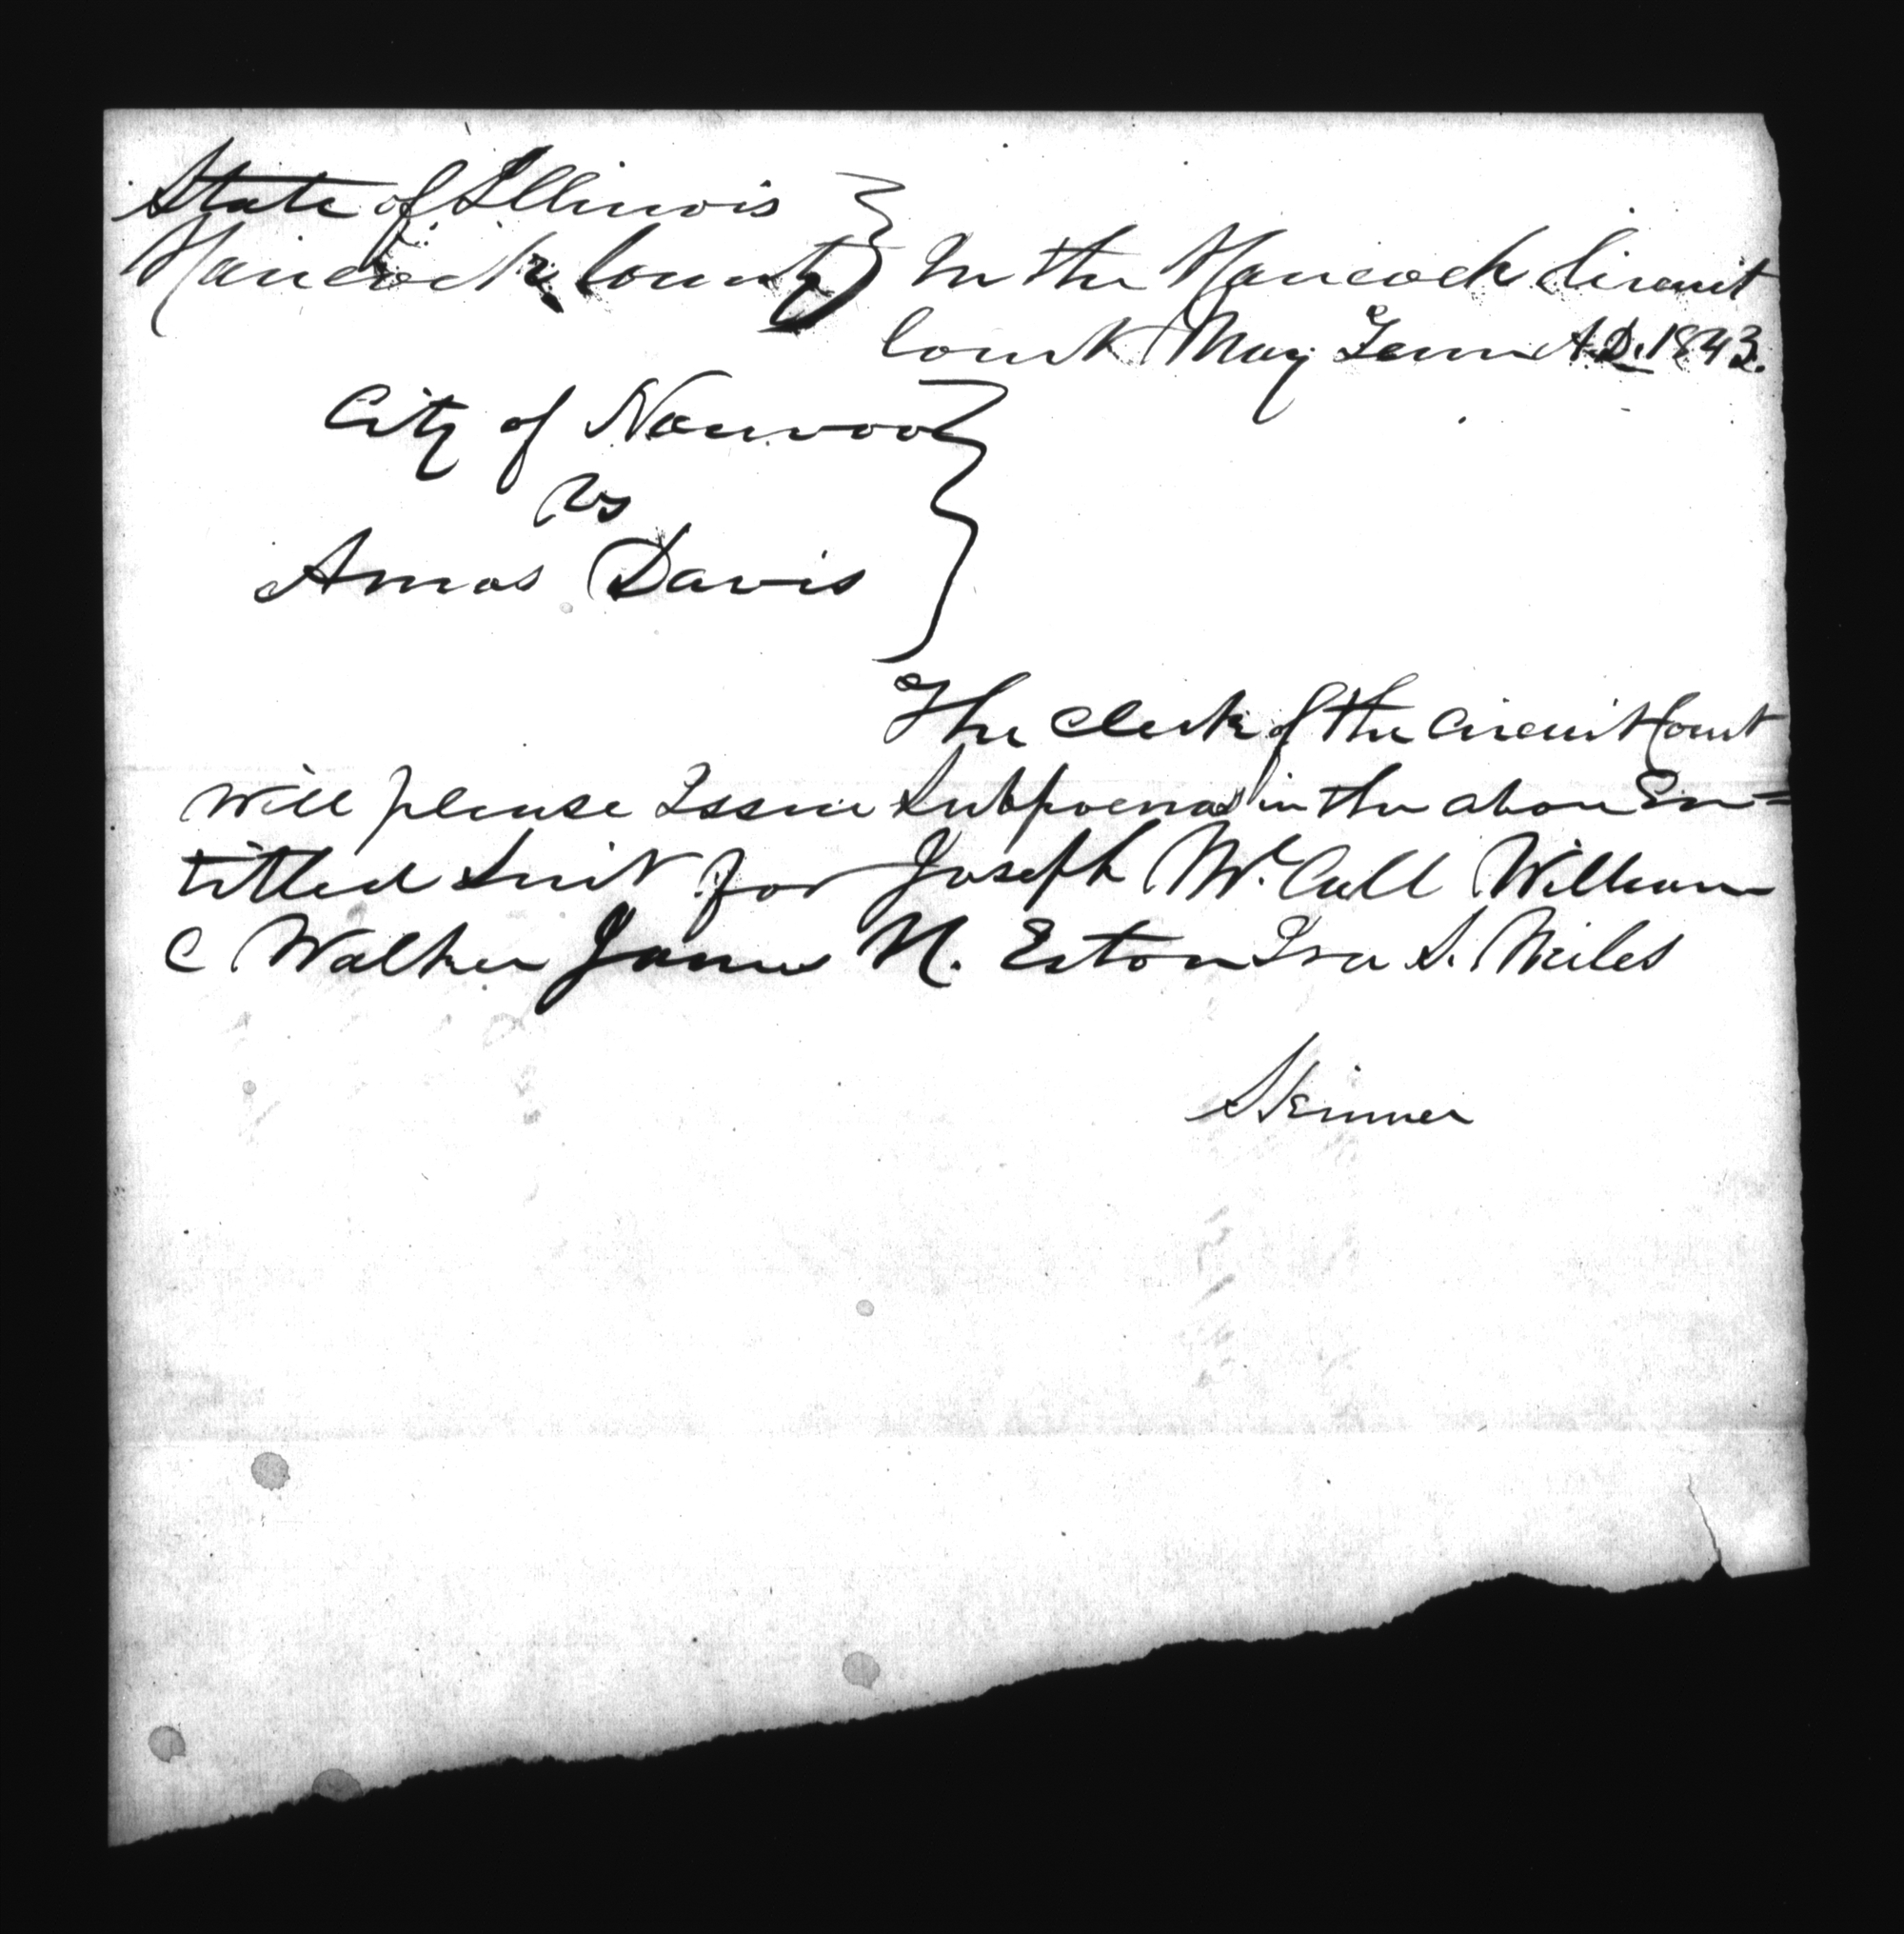 State of Illinois }
Hancock County } In the Hancock Circuit
Court May Term A.D. 1843.
City of Nauvoo
vs
Amos Davis
The Clerk of the Circuit Court
will please Issue Subpoenas in the above En=
titled Suit for Joseph Mc. Call William
C Walker James N. Eston Ira S. Miles
Skinner